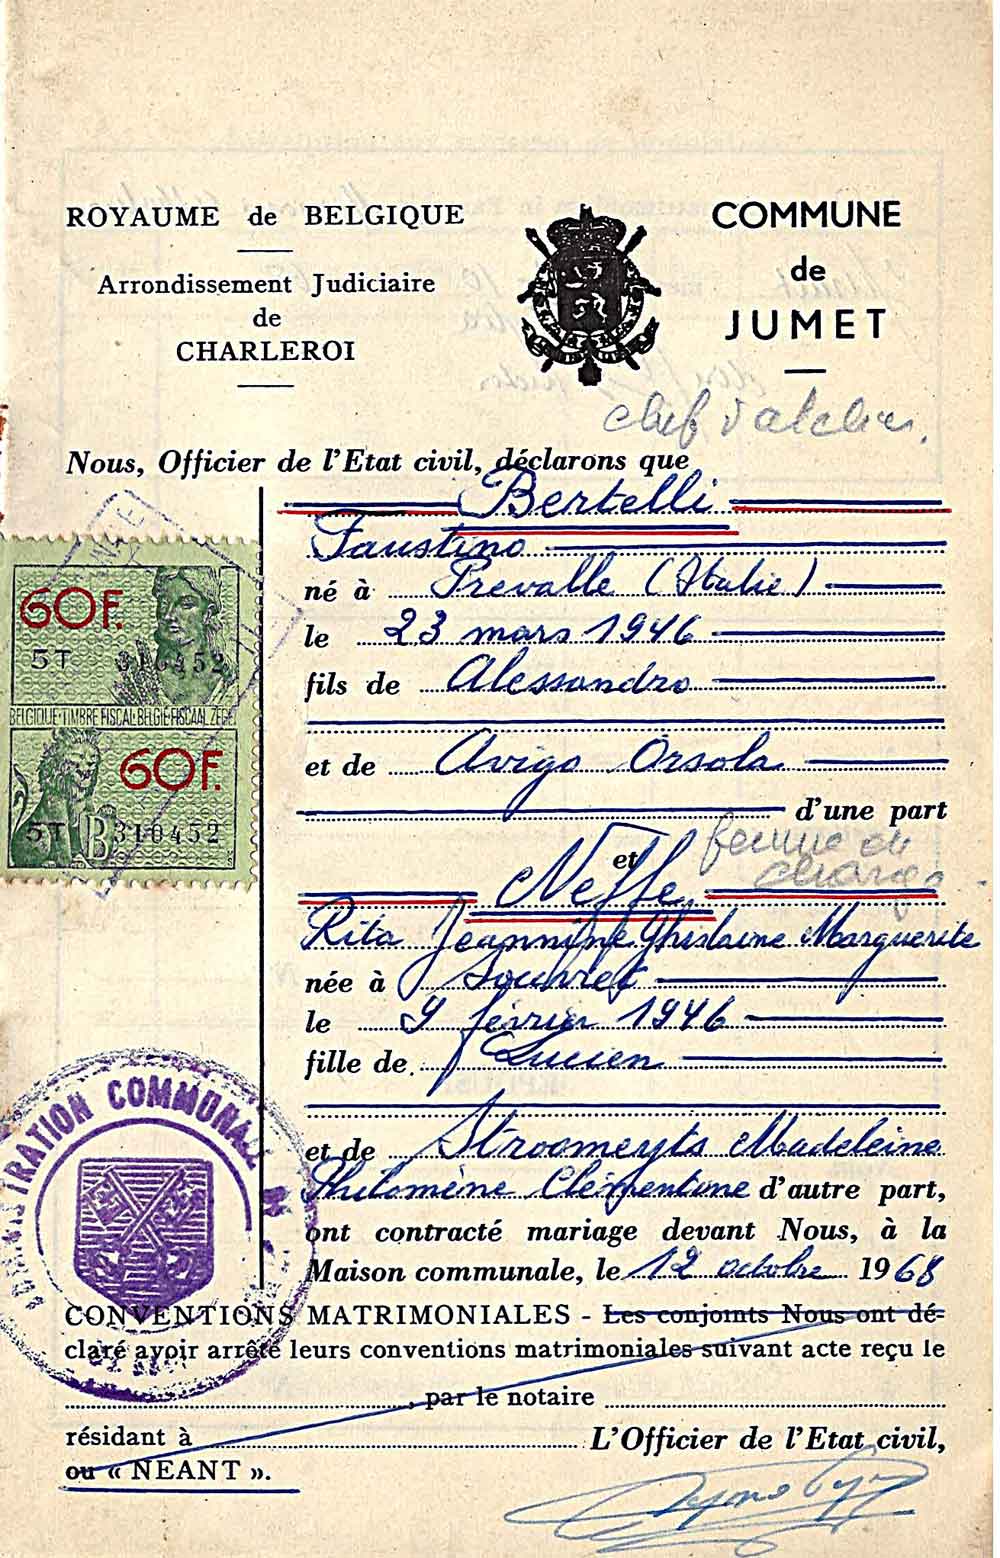 ROYAUME de BELGIQUE
Arrondissement Judiciaire
de
CHARLEROI
COMMUNE
de
JUMET
chef d'atelier.
Nous, Officier de l'Etat civil, déclarons que
Bertelli
Faustino
né à Prevalle (Italie)
le 23 mars 1946
fils de Alessandro
et de Avigo Orsola
d'une part
et
femme de
charge
Neffe
Rita Jeannine Ghislaine Marguerite
née à Souvret
le 9 février 1946
fille de Lucien
et de Stroomeyts Madeleine
Philomène Clémentine d'autre part,
ont contracté mariage devant Nous, à la
Maison communale, le 12 octobre 1968
CONVENTIONS MATRIMONIALES - Les conjoints Nous ont dé-
claré avoir arrêté leurs conventions matrimoniales suivant acte reçu le
, par le notaire
résidant à
L'Officier de l'Etat civil,
ou « NEANT ».
60F.
5T 310452
BELGIQUE-TIMBRE FISCAL-BELGIE-FISCAAL ZEGEL
60F.
5T B310452
ADMINISTRATION COMMUNALE